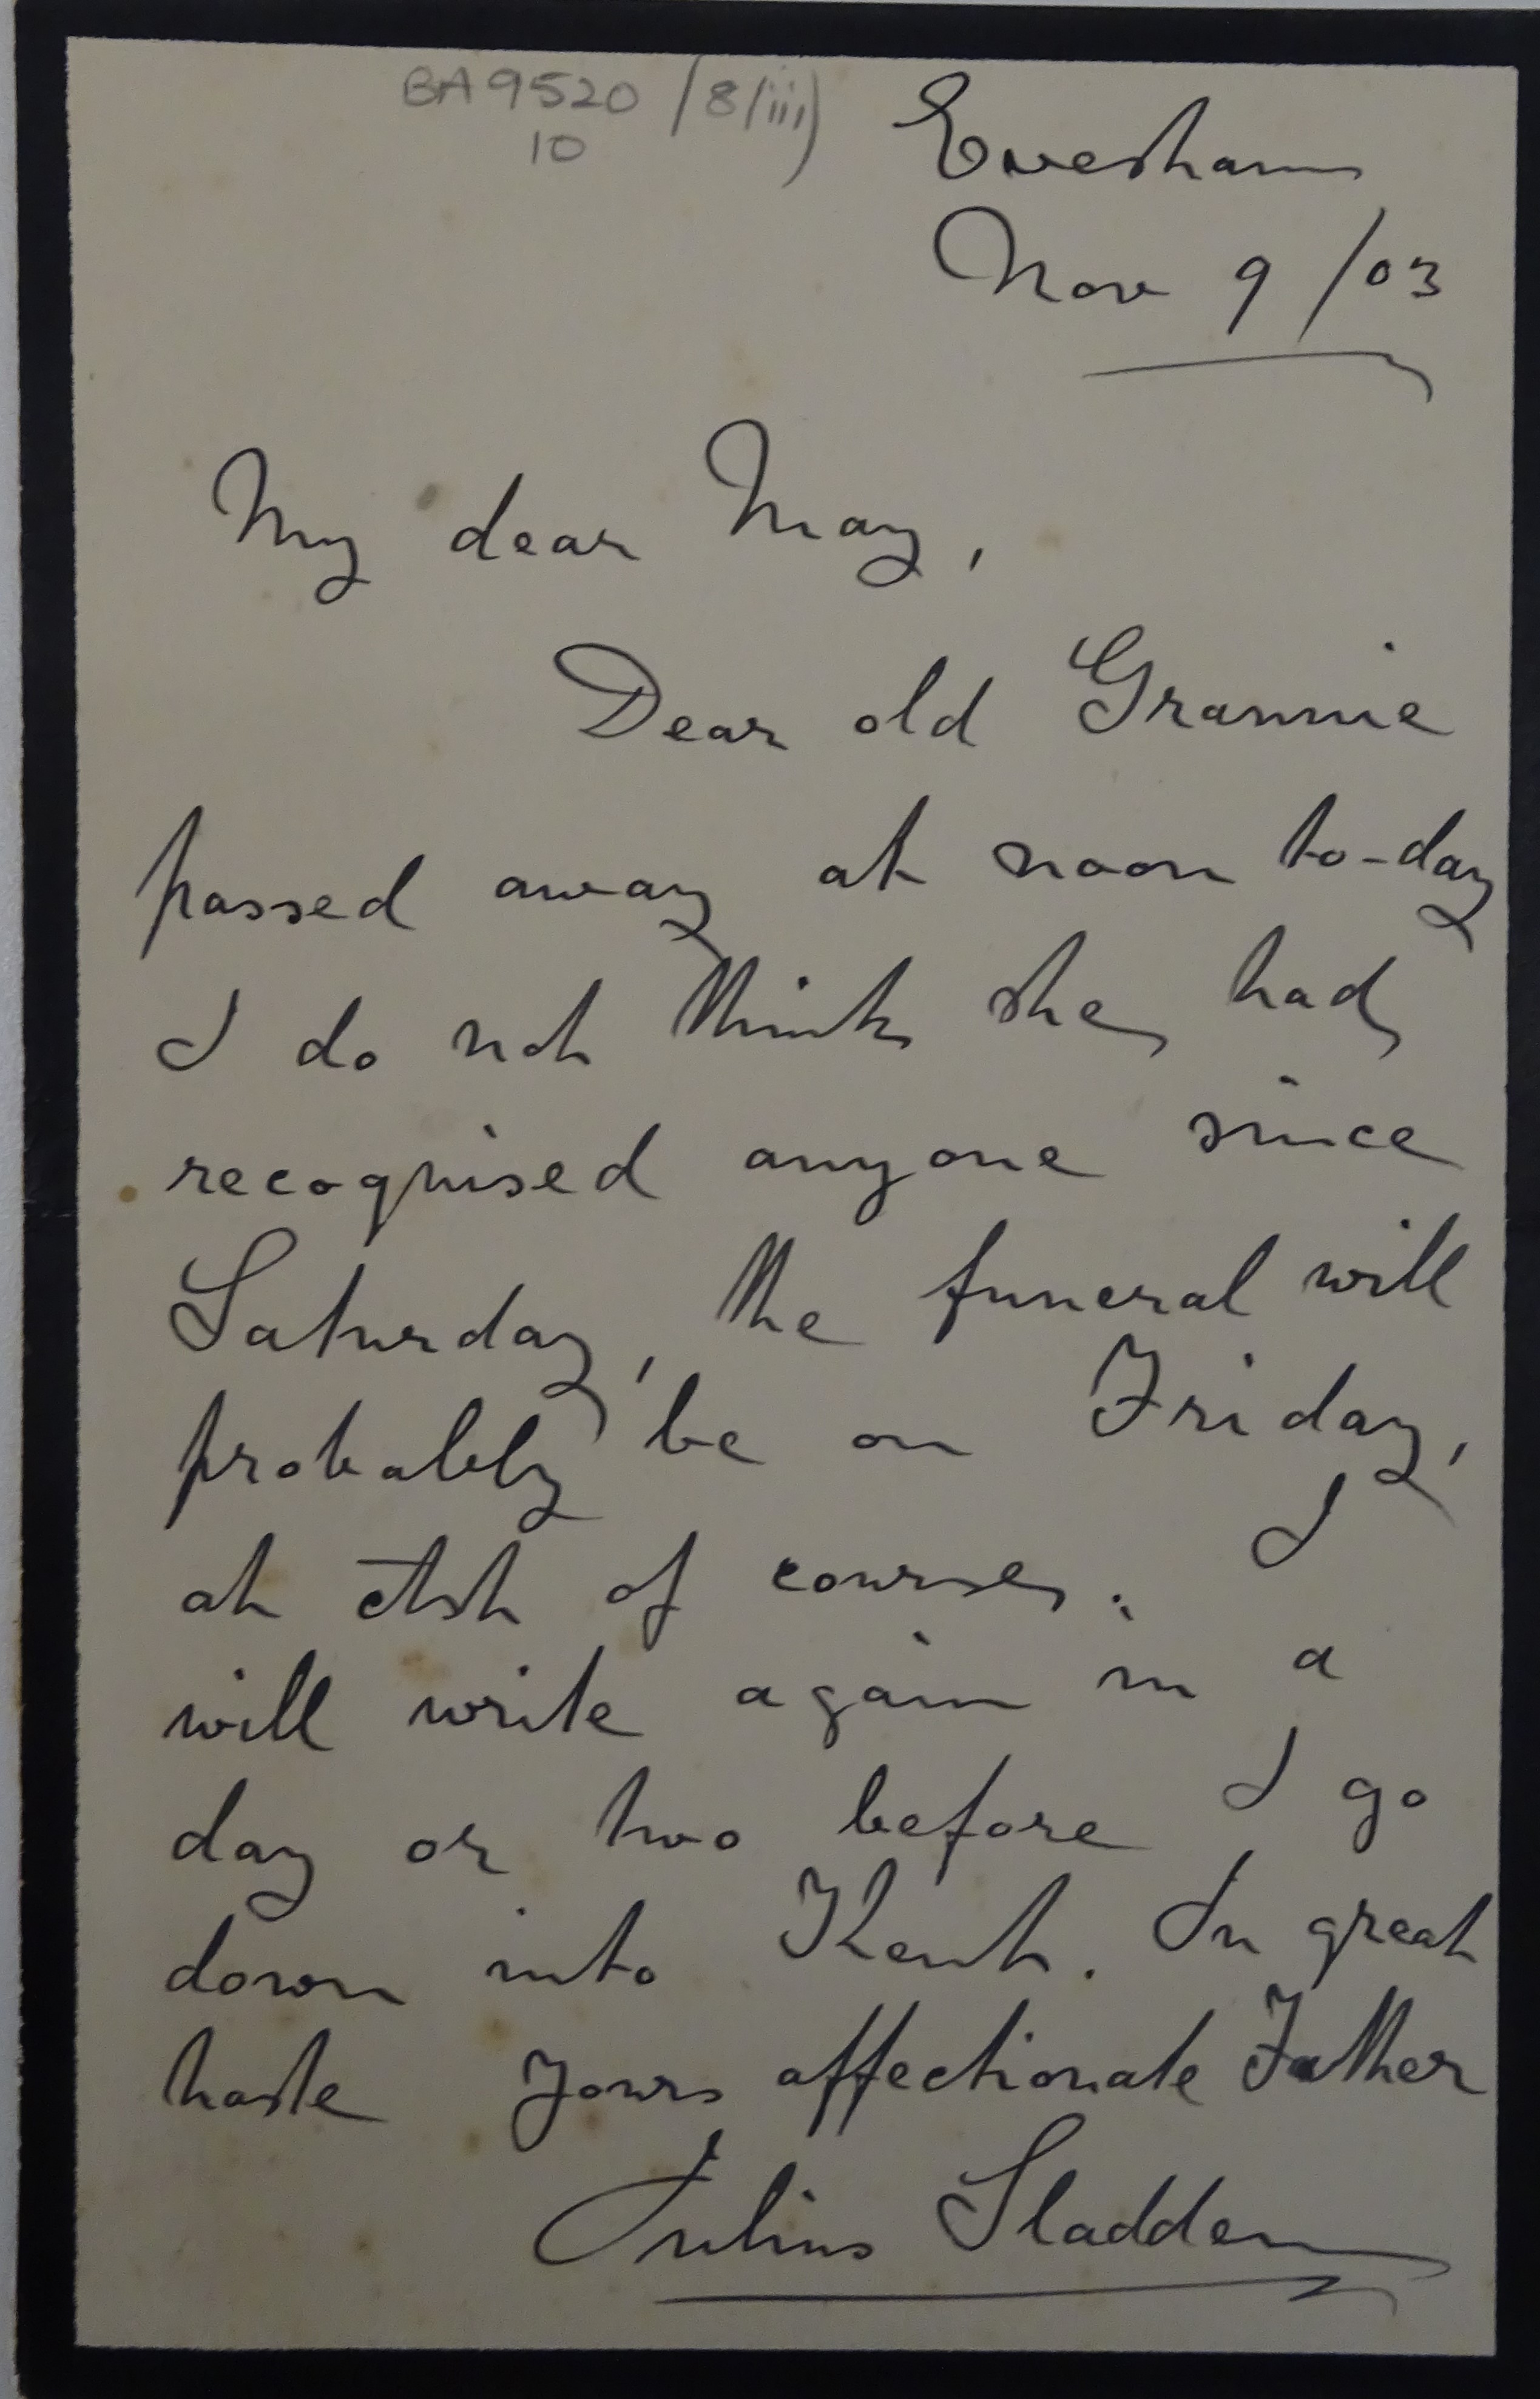 BA 9520 / 8/iii)
10
Evesham
Nov 9 /03
My dear May,
Dear old Grannie
passed away at noon to-day
I do not think she had
recognised anyone since
Saturday, the funeral will
probably be on Friday,
at Ash of course. I
will write again in a
day or two before I go
down into Kent. In great
haste Yours affectionate Father
Julius Sladden